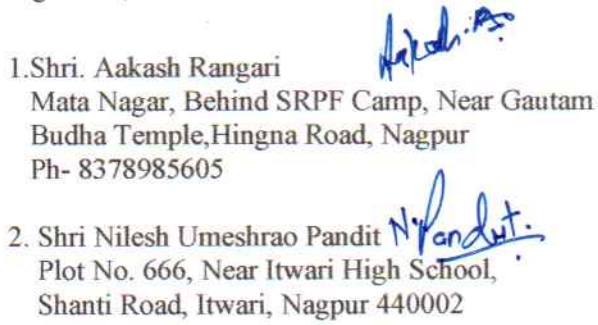 1.Shri. Aakash Rangari
Mata Nagar, Behind SRPF Camp, Near Gautam
Budha Temple,Hingna Road, Nagpur
Ph- 8378985605
2. Shri Nilesh Umeshrao Pandit N.Pandit.
Plot No. 666, Near Itwari High School,
Shanti Road, Itwari, Nagpur 440002